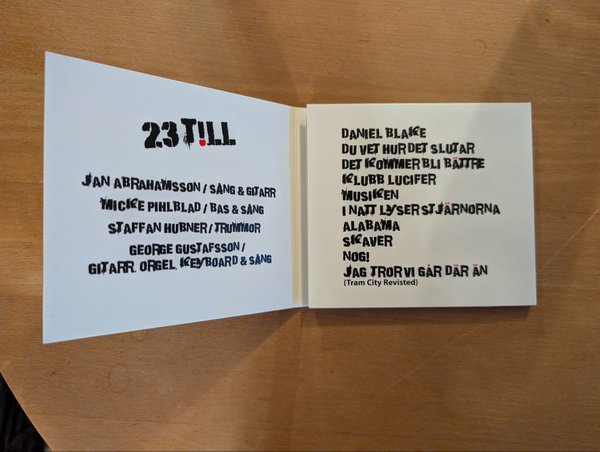 23 T!LL
JAN ABRAHAMSSON / SÅNG & GITARR
MICKE PIHLBLAD / BAS & SÅNG
STAFFAN HUBNER / TRUMMOR
GEORGE GUSTAFSSON /
GITARR. ORGEL. KEYBOARD & SÅNG
DANIEL BLAKE
DU VET HUR DET SLUTAR
DET KOMMER BLI BÄTTRE
KLUBB LUCIFER
MUSIKEN
I NATT LYSER STJÄRNORNA
ALABAMA
SKAVER
NOG!
JAG TROR VI GÅR DÄR ÄN
(Tram City Revisted)